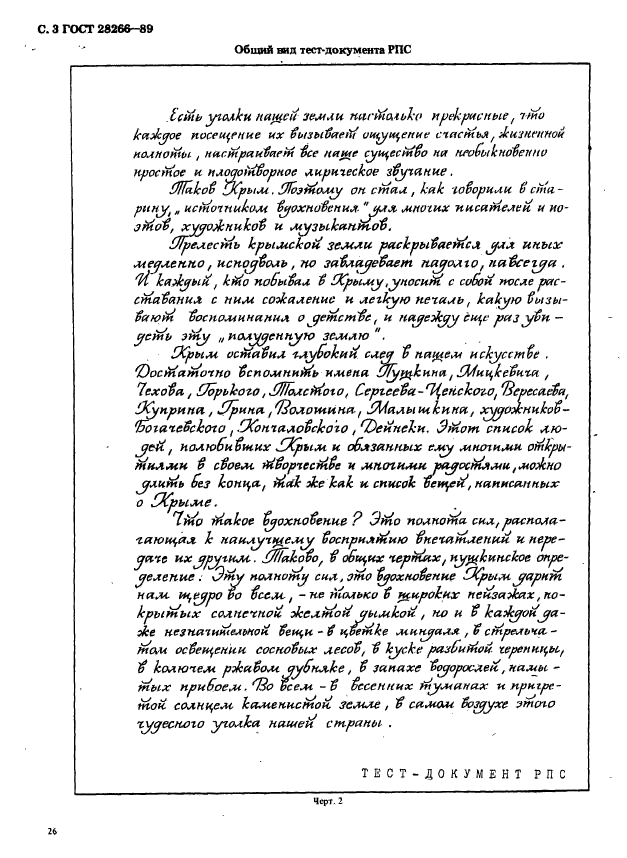 С. 3 ГОСТ 28266—89
Общий вид тест-документа РПС
Есть уголки нашей земли настолько прекрасные, что
каждое посещение их вызывает ощущение счастья, жизненной
полноты, настраивает все наше существо на необыкновенно
простое и плодотворное лирическое звучание.
Таков Крым. Поэтому он стал, как говорили в ста-
рину, „источником вдохновения" для многих писателей и по-
этов, художников и музыкантов.
Прелесть крымской земли раскрывается для иных
медленно, исподволь, но завладевает надолго, навсегда.
И каждый, кто побывал в Крыму, уносит с собой после рас-
ставания с ним сожаление и легкую печаль, какую вызы-
вают воспоминания о детстве, и надежду еще раз уви-
деть эту „полуденную землю".
Крым оставил глубокий след в нашем искусстве.
Достаточно вспомнить имена Пушкина, Мицкевича,
Чехова, Горького, Толстого, Сергеева-Ценского, Вересаева,
Куприна, Грина, Волошина, Малышкина, художников-
Богачевского, Кончаловского, Дейнеки. Этот список лю-
дей, полюбивших Крым и обязанных ему многими откры-
тиями в своем творчестве и многими радостями, можно
длить без конца, так же как и список вещей, написанных
о Крыме.
Что такое вдохновение? Это полнота сил, распола-
гающая к наилучшему восприятию впечатлений и пере-
даче их другим. Таково, в общих чертах, пушкинское опре-
деление. Эту полноту сил, это вдохновение Крым дарит
нам щедро во всем, - не только в широких пейзажах, по-
крытых солнечной желтой дымкой, но и в каждой да-
же незначительной вещи - в цветке миндаля, в стрельча-
том освещении сосновых лесов, в куске разбитой череницы,
в колючем ржавом дубняке, в запахе водорослей, намы-
тых прибоем. Во всем - в весенних туманах и пригре-
той солнцем каменистой земле, в самом воздухе этого
чудесного уголка нашей страны.
ТЕСТ-ДОКУМЕНТ РПС
Черт. 2
26